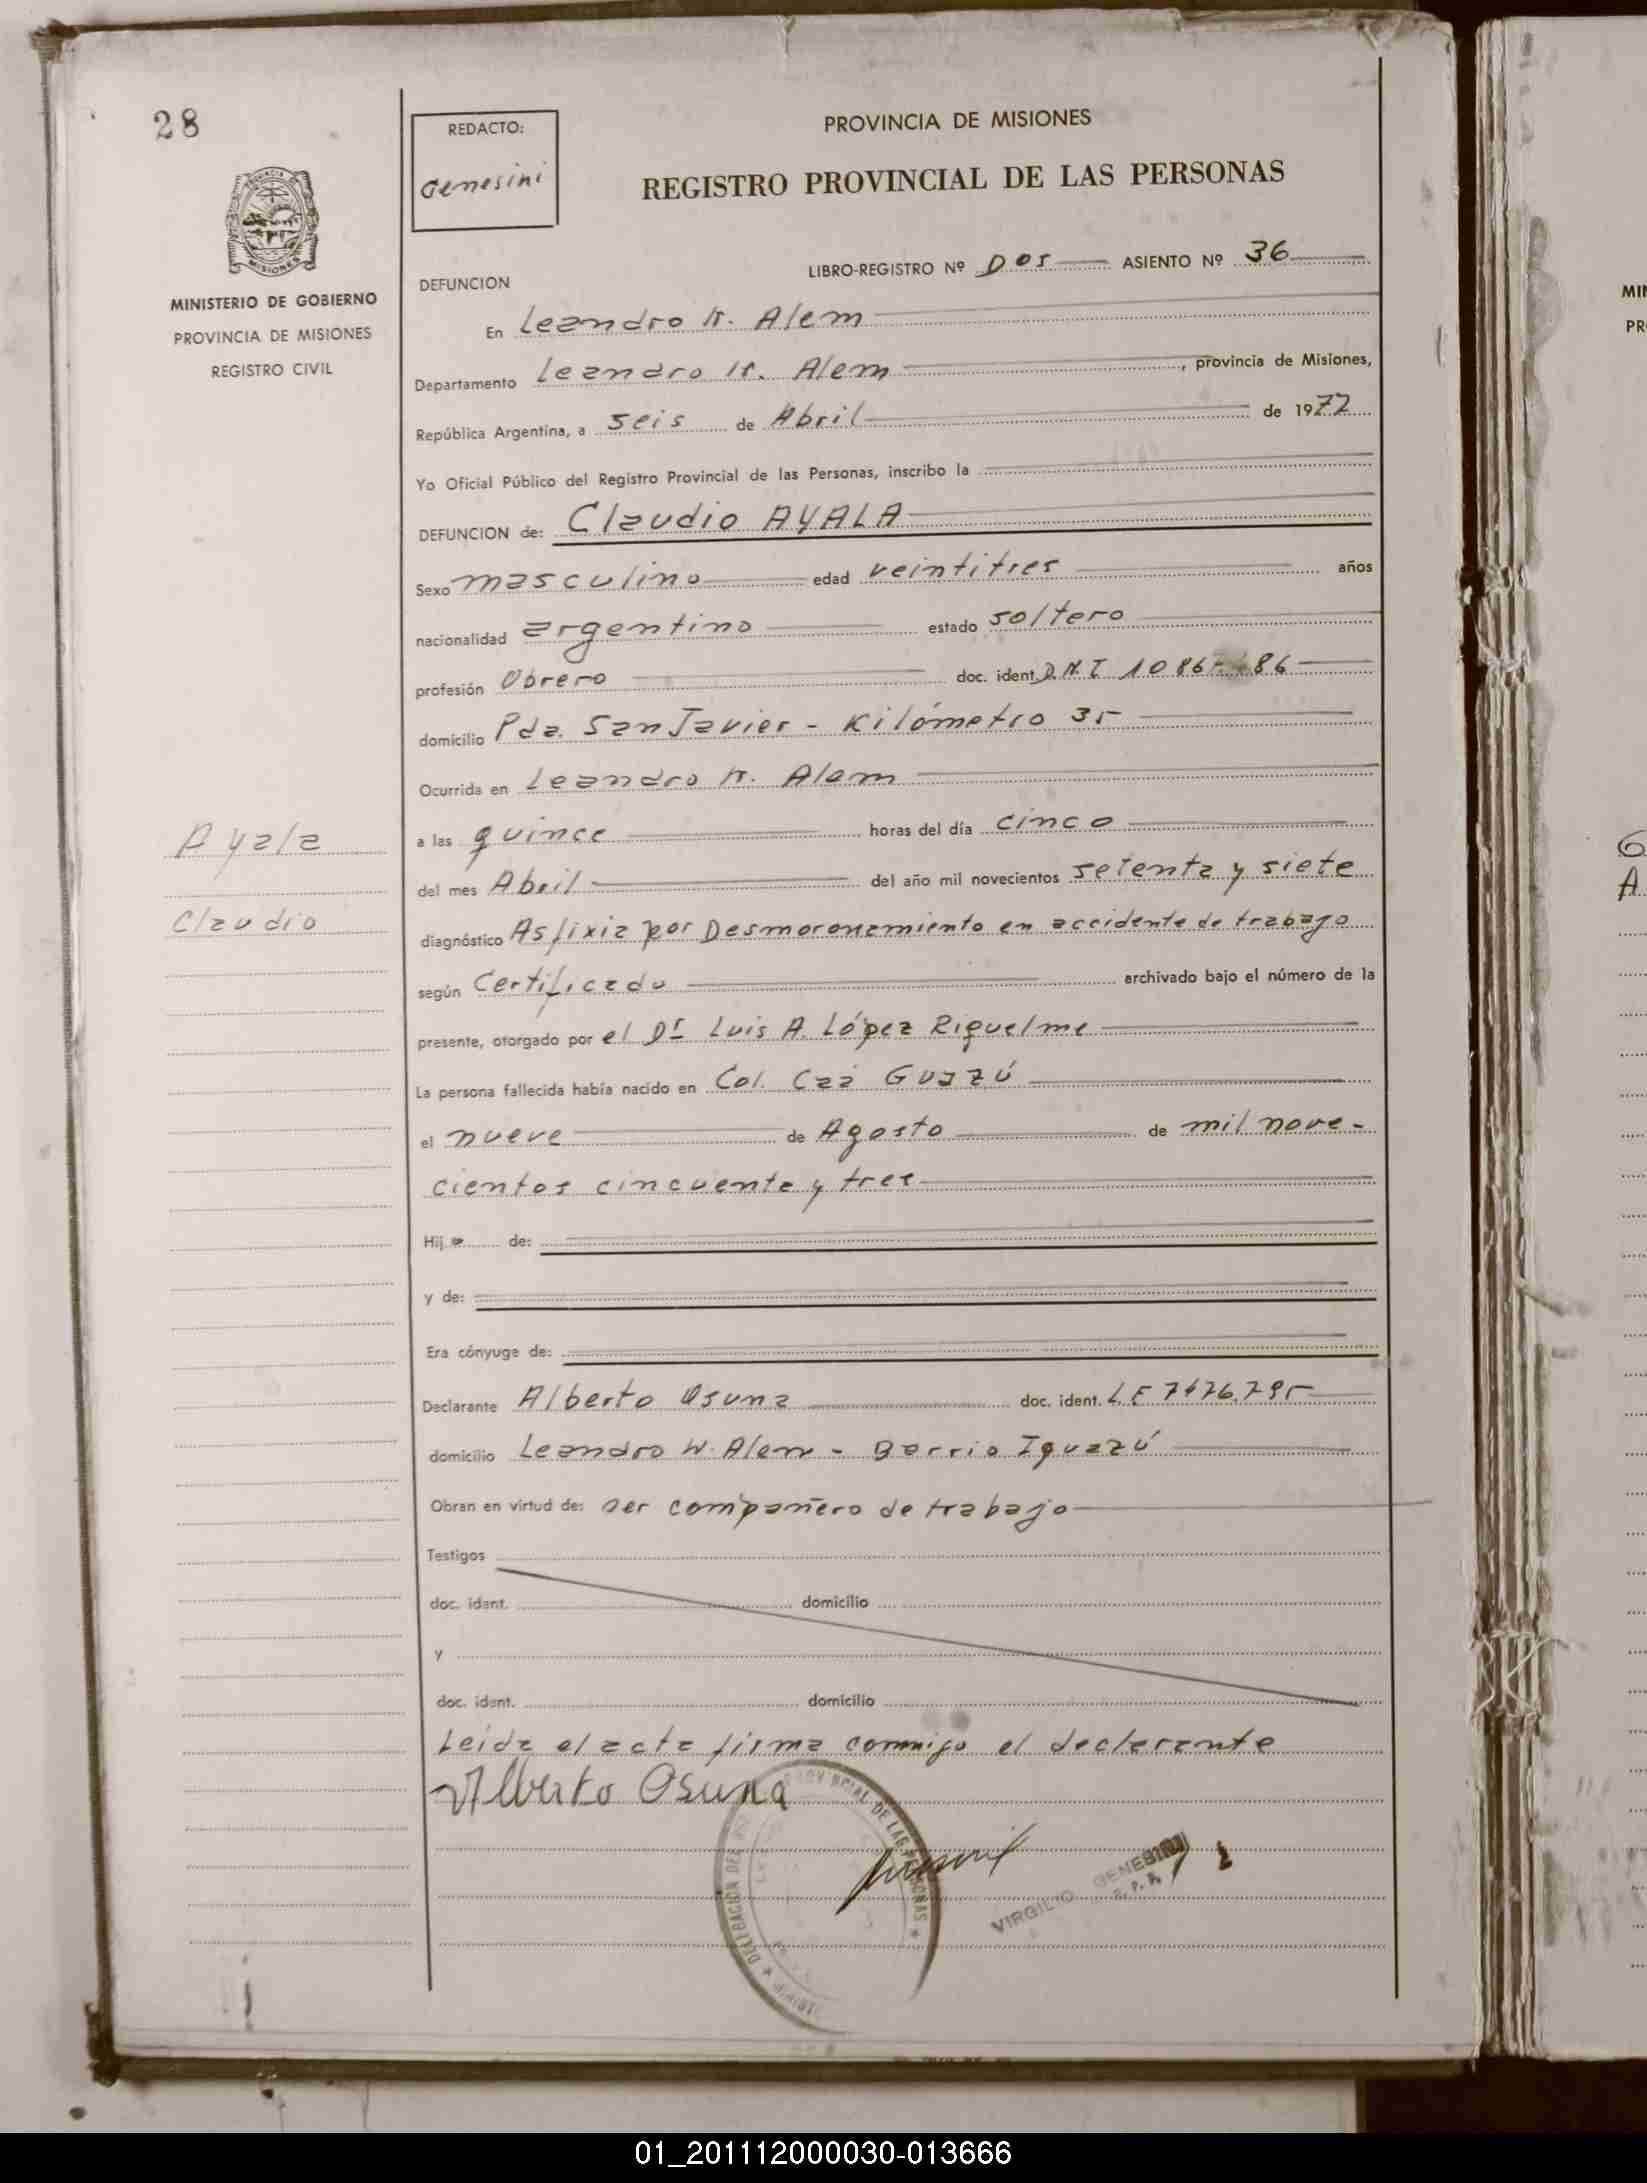 28
REDACTO:
Genesini
PROVINCIA DE MISIONES
REGISTRO PROVINCIAL DE LAS PERSONAS
MISIONES
MINISTERIO DE GOBIERNO
PROVINCIA DE MISIONES
REGISTRO CIVIL
LIBRO-REGISTRO Nº Dos ASIENTO Nº 36
DEFUNCION
En Leandro N. Alem
Departamento Leandro N. Alem, provincia de Misiones,
República Argentina, a seis de Abril de 1977
Yo Oficial Público del Registro Provincial de las Personas, inscribo la
DEFUNCION de: Claudio AYALA
Sexo masculino edad veintitres años
nacionalidad argentino estado soltero
profesión Obrero doc. ident. D.N.I 1086 86
domicilio Pda. San Javier - Kilómetro 35
Ocurrida en Leandro N. Alem
a las quince horas del día cinco
Ayala
del mes Abril del año mil novecientos setenta y siete
Claudio
diagnóstico Asfixia por Desmoronamiento en accidente de trabajo
según Certificado archivado bajo el número de la
presente, otorgado por el Dr Luis A. López Riquelme
La persona fallecida había nacido en Col. Caá Guazú
el nueve de Agosto de mil nove-
cientos cincuenta y tres
Hij o de:
y de:
Era cónyuge de:
Declarante Alberto Osuna doc. ident. L.E 7476.795
domicilio Leandro N. Alem - Barrio Iguazú
Obran en virtud de: ser compañero de trabajo
Testigos
doc. ident. domicilio
y
doc. ident. domicilio
Leida el acta firma conmigo el declarante
Alberto Osuna
VIRGILIO GENESINI
01_201112000030-013666